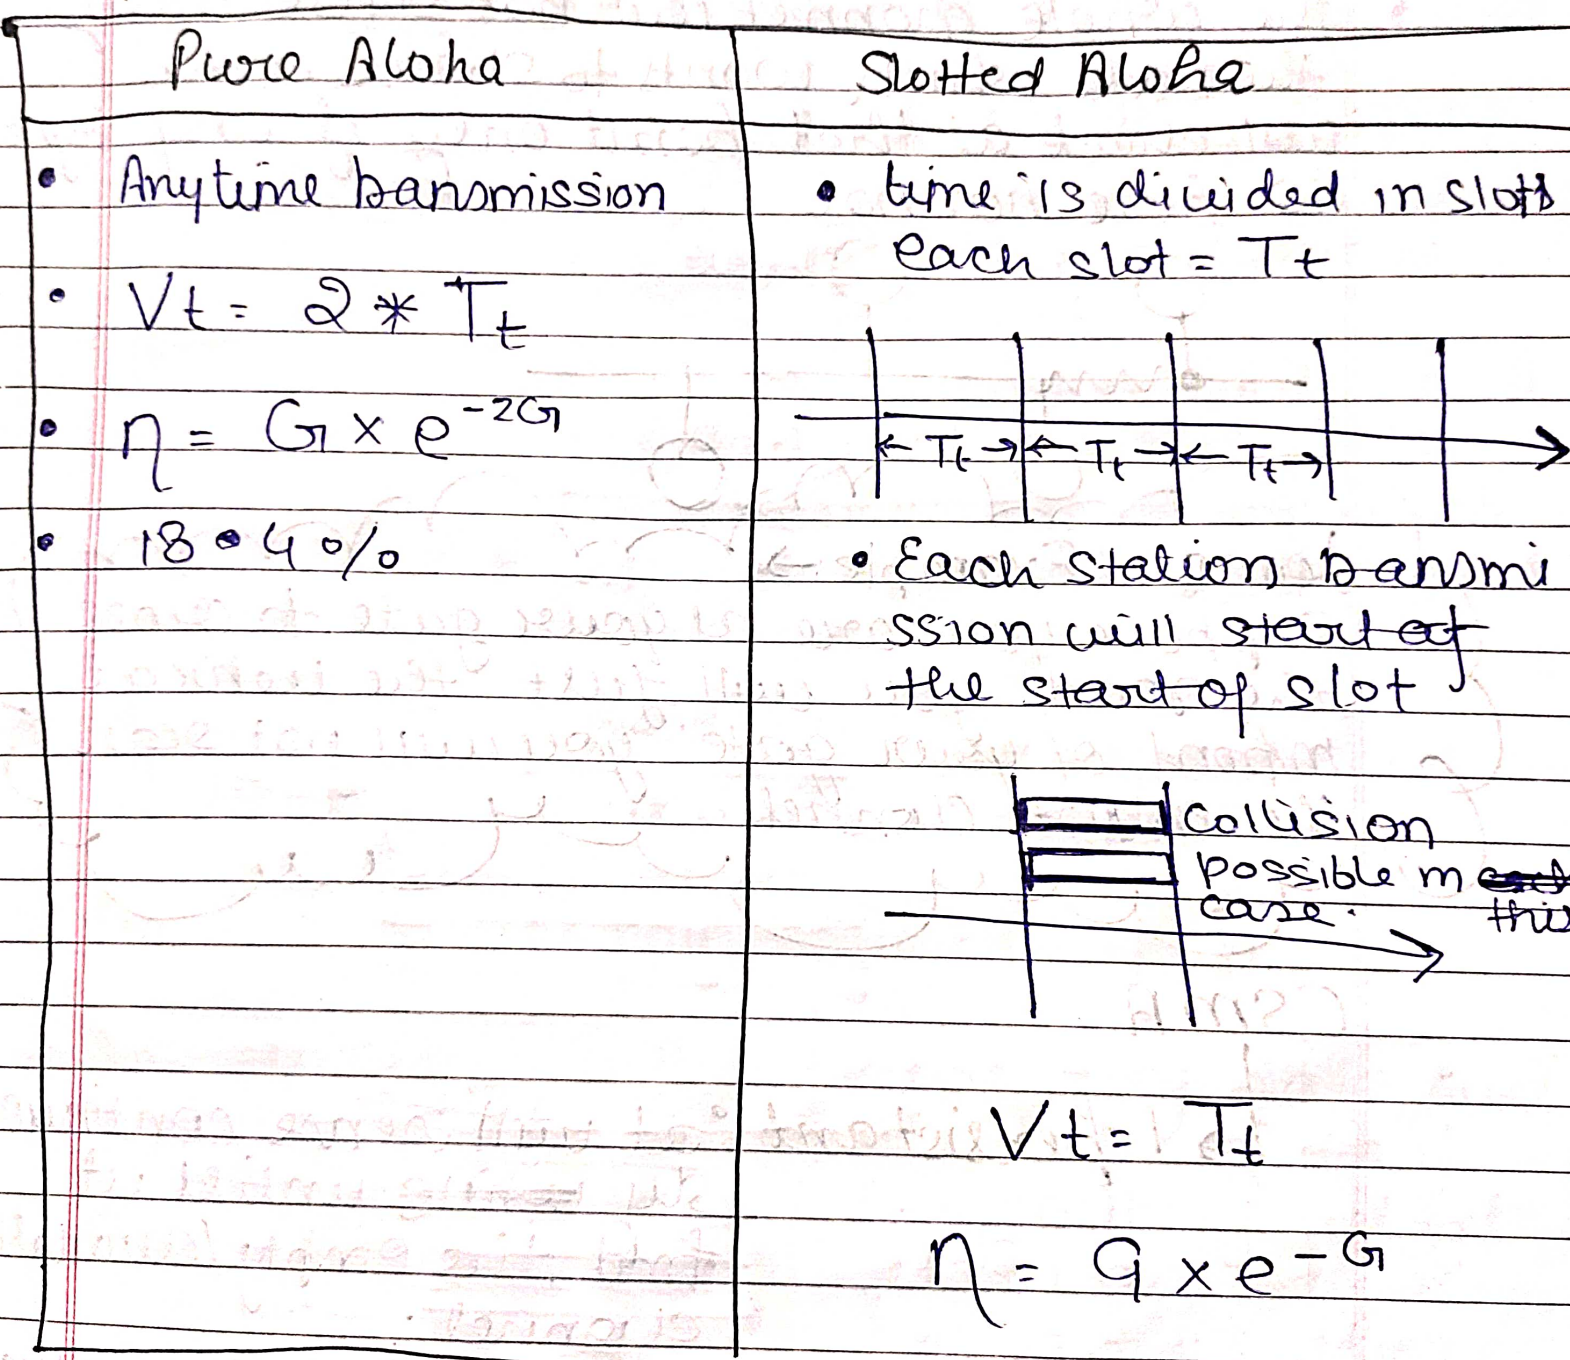 Pure Aloha
Slotted Aloha
• Anytime transmission
• Vt = 2 * Tt
• η = G x e^-2G
• 18.4 %
• time is divided in slots
each slot = Tt
← Tt → ← Tt → ← Tt →
• Each station transmi
ssion will start at
the start of slot
Collision
possible in
case. this
Vt = Tt
η = G x e^-G